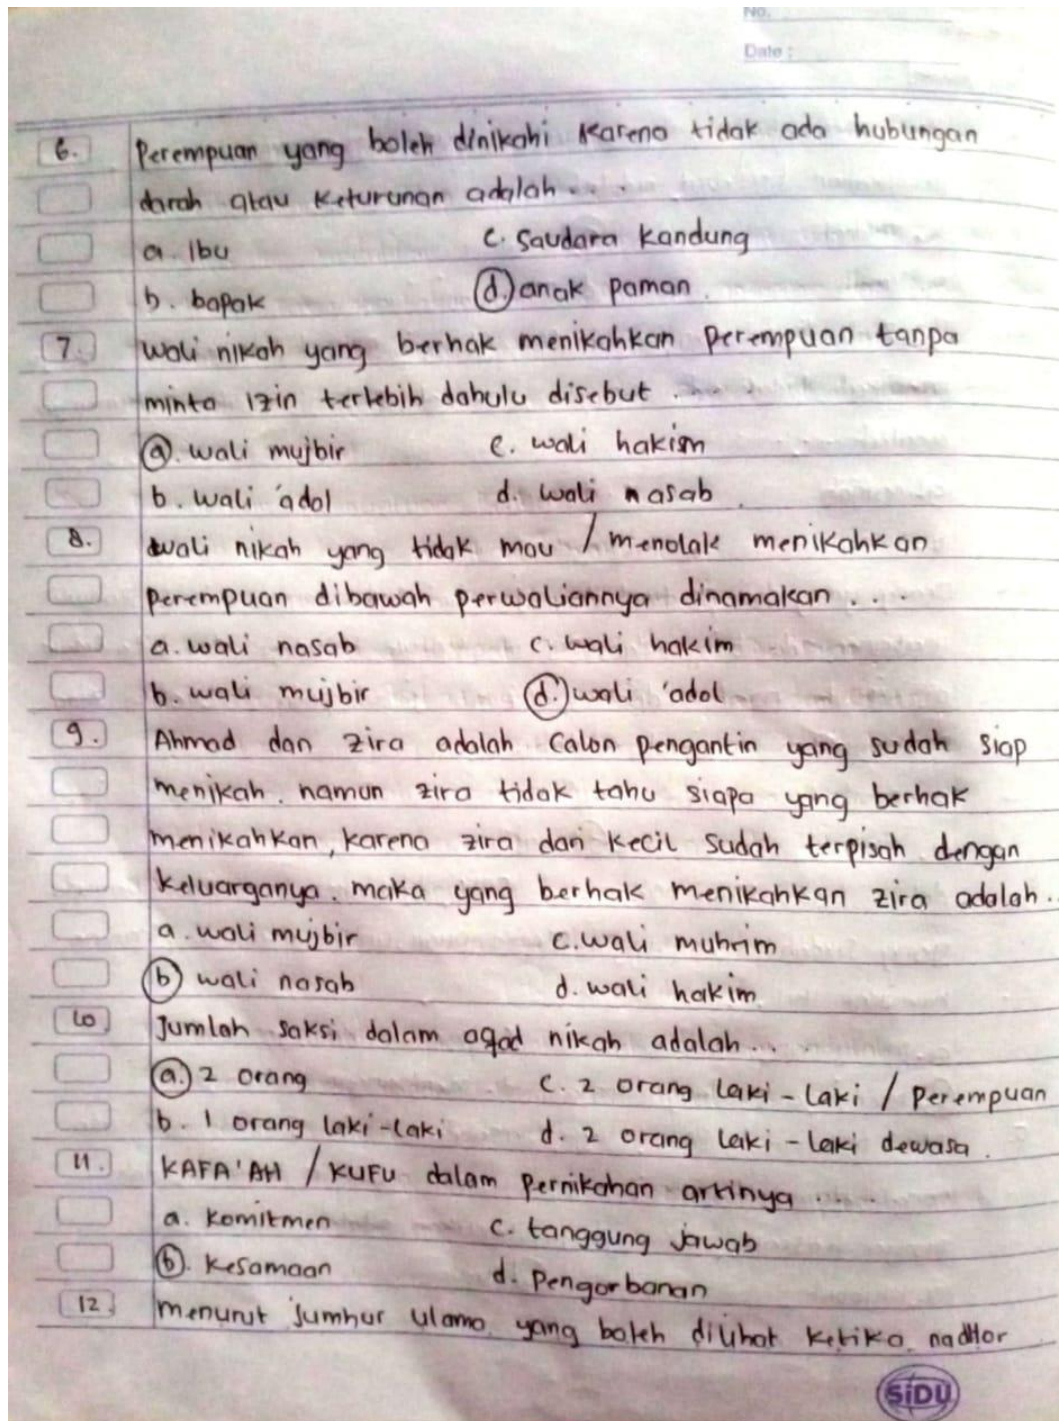 No.
Date :
6. Perempuan yang boleh dinikahi Karena tidak ada hubungan
darah atau Keturunan adalah . . .
a. Ibu c. Saudara Kandung
b. bapak d. anak paman.
7. Wali nikah yang berhak menikahkan Perempuan tanpa
minta izin terlebih dahulu disebut . . . .
a. wali mujbir c. wali hakim
b. wali 'adol d. wali nasab.
8. wali nikah yang tidak mau / menolak menikahkan
perempuan dibawah perwaliannya dinamakan . . .
a. wali nasab c. wali hakim
b. wali mujbir d. wali 'adol
9. Ahmad dan Zira adalah Calon pengantin yang sudah siap
menikah. namun zira tidak tahu siapa yang berhak
menikahkan, karena zira dari kecil sudah terpisah dengan
keluarganya. maka yang berhak menikahkan zira adalah..
a. wali mujbir c. wali muhrim
b wali nasab d. wali hakim
10 Jumlah saksi dalam aqad nikah adalah . . .
a. 2 orang c. 2 orang laki-laki / Perempuan
b. 1 orang laki-laki d. 2 orang laki-laki dewasa.
11. KAFA'AH / KUFU dalam Pernikahan artinya . . . .
a. Komitmen c. tanggung jawab
b. Kesamaan d. Pengorbanan
12. menurut jumhur ulama yang boleh dilihat ketika nadhor
SiDU